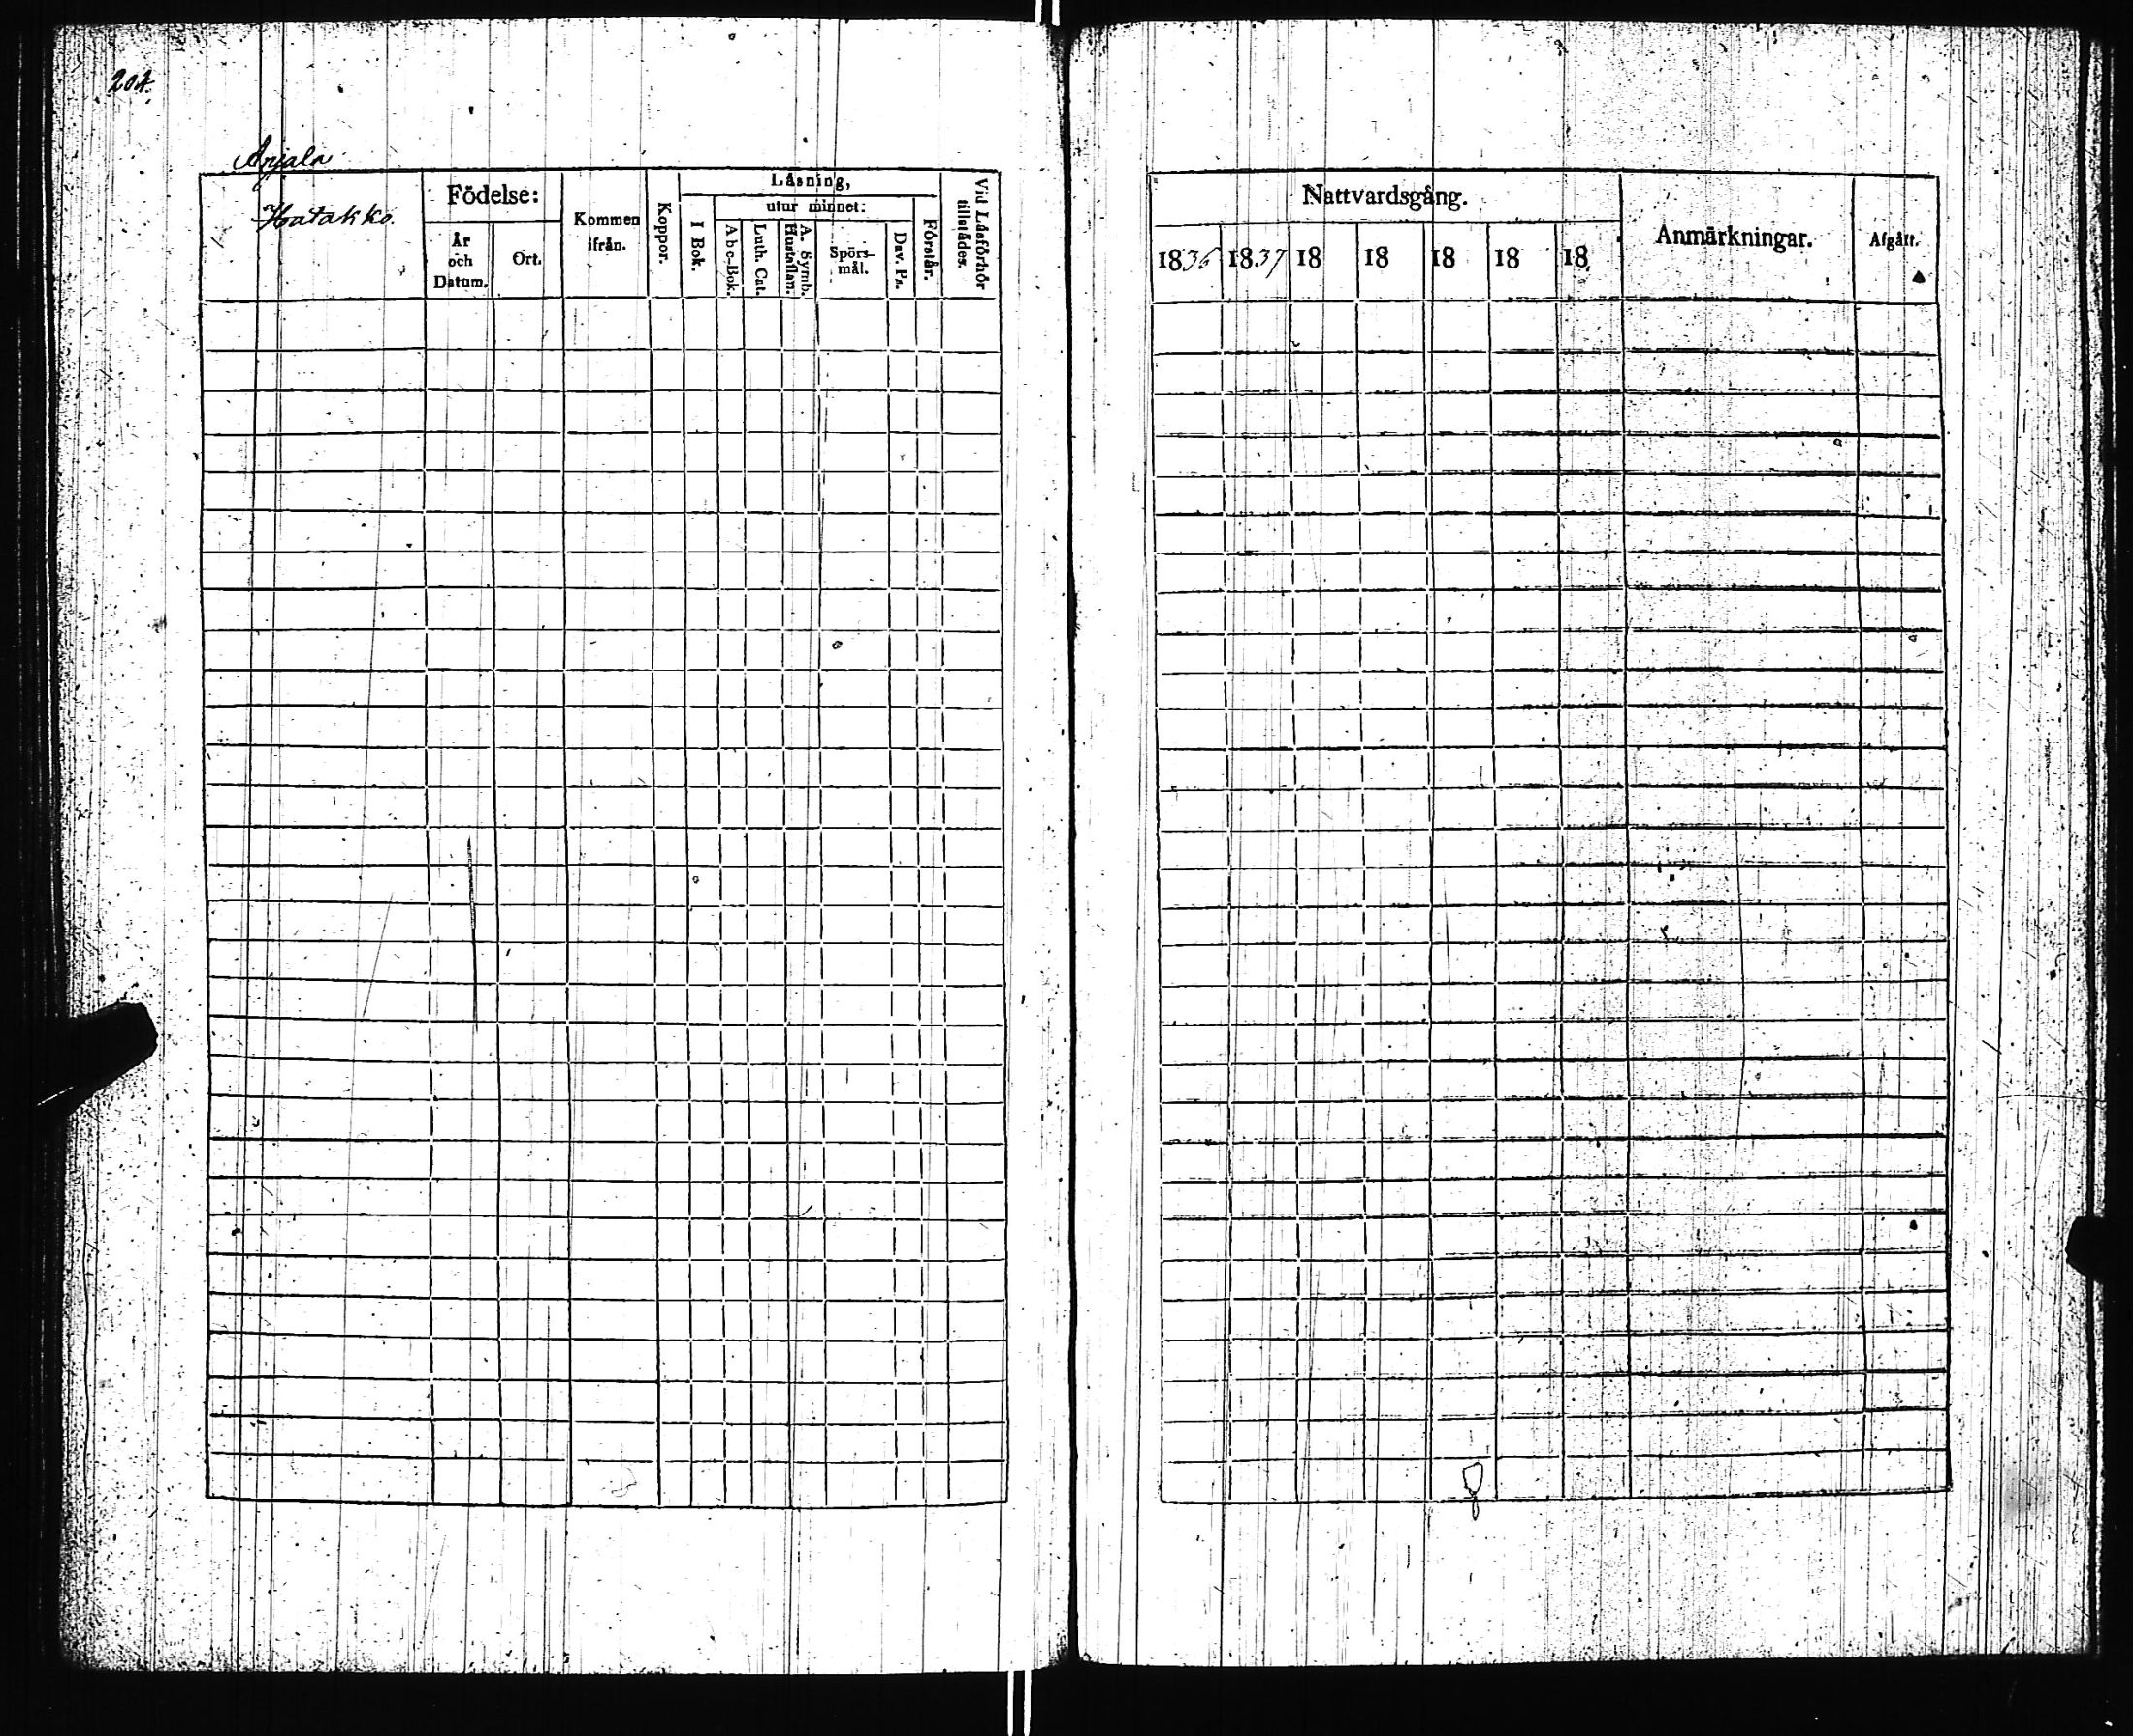 204.
Anjala
Hatakko.
Födelse:
År och Datum.
Ort.
Kommen ifrån.
Koppor.
Läsning,
I Bok.
utur minnet:
A b c-Bok.
Luth. Cat.
A. Symb. Hustaflan.
Spörs-
mål.
Dav. Ps.
Förstår.
Vid Läsförhör tillstädes.
Nattvardsgång.
1836 1837 18 18 18 18 18
Anmärkningar.
Afgått.